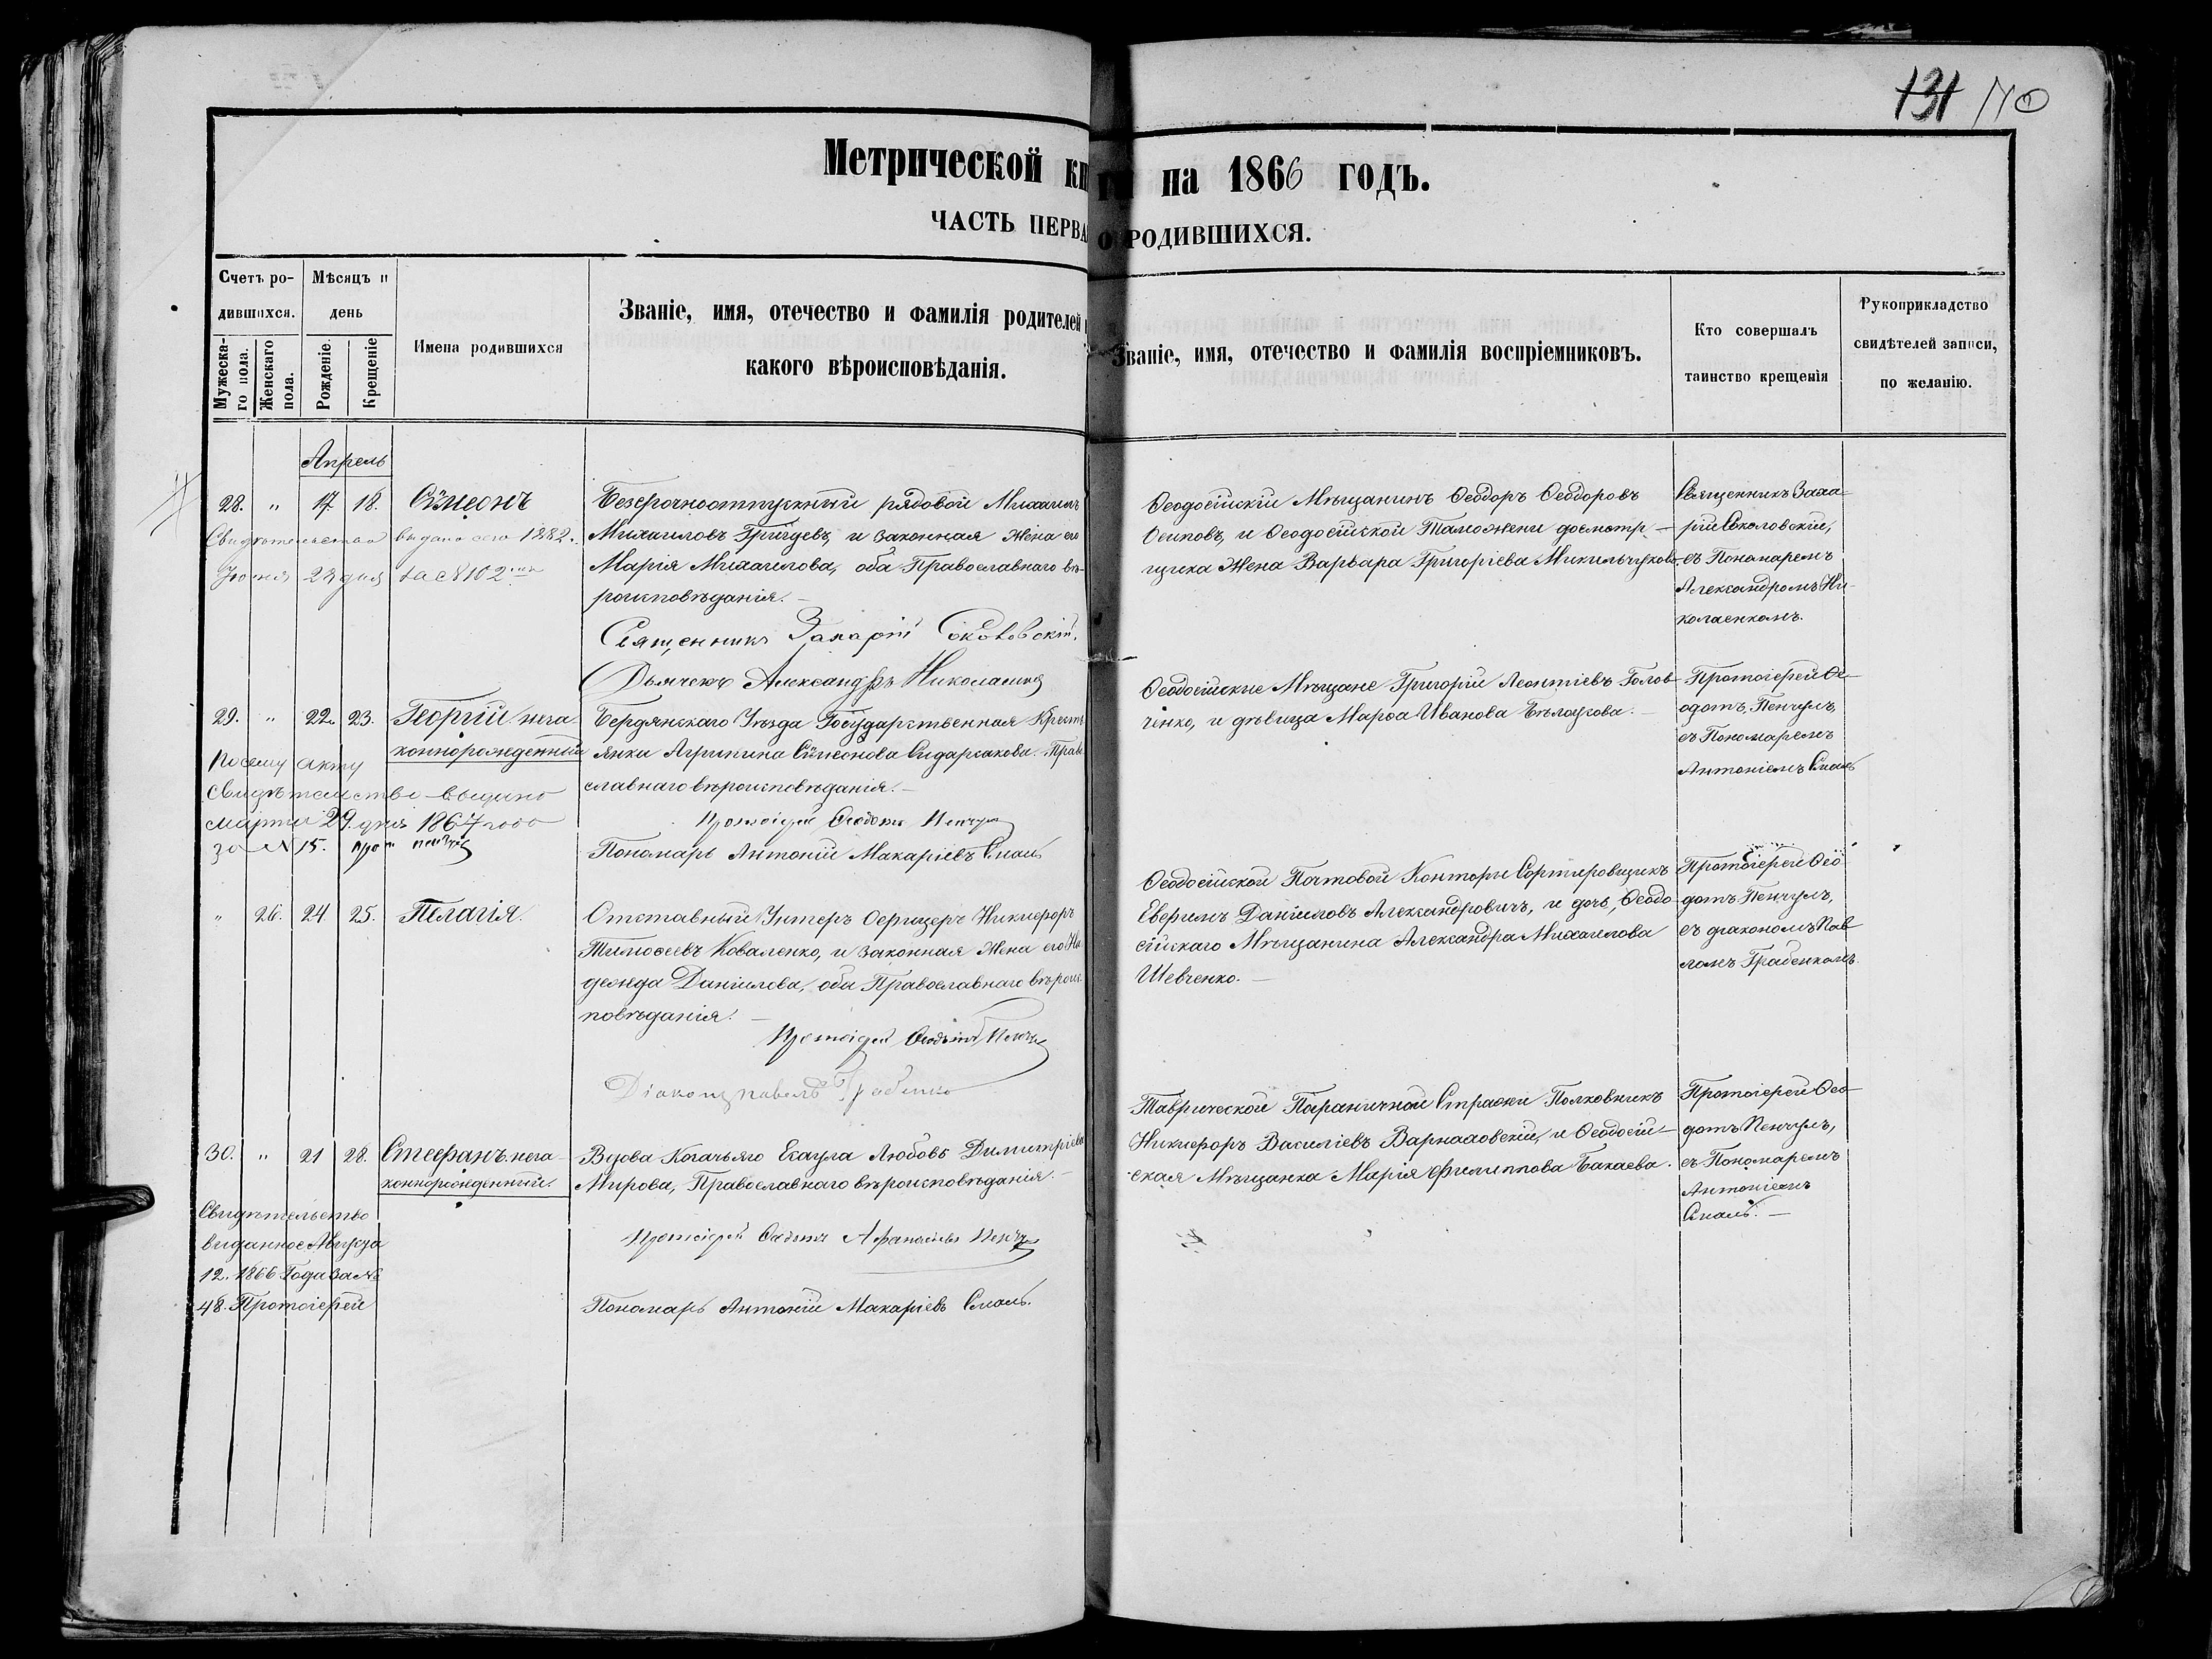 131 110
Метрической книги на 1866 годъ.
ЧАСТЬ ПЕРВАЯ О РОДИВШИХСЯ.
Счетъ родившихся.
Мужескаго пола.
Женскаго пола.
Мѣсяцъ и день
Рожденіе.
Крещеніе
Имена родившихся
Званіе, имя, отечество и фамилія родителей и
какого вѣроисповѣданія.
Званіе, имя, отечество и фамилія воспріемниковъ.
Кто совершалъ
таинство крещенія
Рукоприкладство
свидѣтелей записи,
по желанію.
Апрель
28. " 17. 18. Сѵмеонъ
Свидѣтельство выдано сего 1882.
Іюня 23 дня за № 102
Безсрочноотпускный рядовой Михаилъ
Михаиловъ и законная жена его
Марія Михаилова, оба Православнаго вѣ-
роисповѣданія.
Священникъ Захарій Соколовскій.
Дьячекъ Александръ Николаенко
Ѳеодосійскій Мѣщанинъ Ѳеодоръ Ѳеодоровъ
Осиповъ, и Ѳеодосійской Таможни досмотр-
щика жена Варвара Григоріева
Священникъ Заха-
рій Соколовскій,
съ Пономаремъ
Александромъ Ни-
колаенкомъ.
29. " 22. 23. Георгій неза-
коннорожденный
По сему акту
свидѣтельство выдано
марта 29 дня 1867 года
за № 15.
Бердянскаго Уѣзда Государственная Кресть-
янка Агрипина Сѵмеонова Право-
славнаго вѣроисповѣданія.
Протоіерей Ѳеодотъ Пенчулъ
Пономарь Антоній Макаріевъ Смаль
Ѳеодосійскіе Мѣщане Григорій Леонтіевъ Голов-
чінко, и дѣвица Марѳа Иванова
Протоіерей Ѳе-
одотъ Пенчулъ,
съ Пономаремъ
Антоніемъ Смаль
" 26. 24. 25. Пелагія.
Отставный Унтеръ Офицеръ Никифоръ
Тимоѳеевъ Коваленко, и законная жена его На-
дежда Даніилова, оба Православнаго вѣроис-
повѣданія.
Протоіерей Ѳеодотъ Пенчулъ
Діаконъ Павелъ Грабенко
Ѳеодосійской Почтовой Конторы Сортировщикъ
Евфимъ Даніиловъ Александровичъ, и дочь, Ѳеодо-
сійскаго Мѣщанина Александра Михаилова
Шевченко.
Протоіерей Ѳео-
дотъ Пенчулъ,
съ діакономъ Пав-
ломъ Грабенкомъ.
30. " 21 28. Стефанъ неза-
коннорожденный.
Свидѣтельство
выданное Августа
12. 1866 Года за №
48. Протоіерей
Вдова Козачьяго Есаула Любовь Димитріева
Мирова, Православнаго вѣроисповѣданія.
Протоіерей Ѳеодотъ Афанасіевъ Пенчулъ
Пономарь Антоній Макаріевъ Смаль.
Таврической Пограничной Стражи Полковникъ
Никифоръ Василіевъ Варнаховскій, и Ѳеодосій-
ская Мѣщанка Марія Филиппова Бакаева.
Протоіерей Ѳео-
дотъ Пенчулъ,
съ Пономаремъ
Антоніемъ
Смаль.